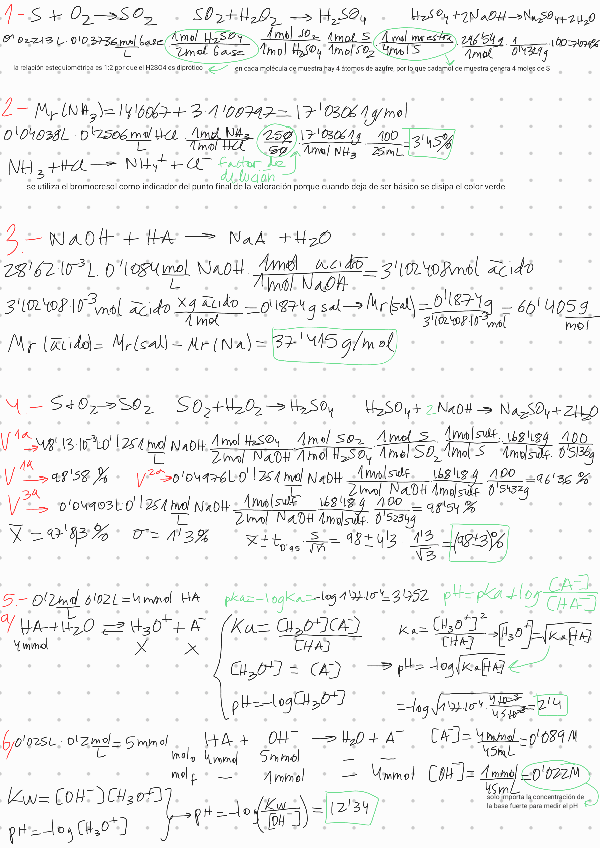 1.- S + O2 → SO2 SO2 + H2O2 → H2SO4 H2SO4 + 2NaOH → Na2SO4 + 2H2O
0'02213L · 0'03736 mol base/L · 1mol H2SO4/2mol base · 1mol SO2/1mol H2SO4 · 1mol S/1mol SO2 · 1mol muestra/4mol S · 296'54g/1mol · 1/0'4329g · 100
la relación estequiométrica es 1:2 porque el H2SO4 es diprotico en cada molécula de muestra hay 4 átomos de azufre, por lo que cada mol de muestra genera 4 moles de S
2.- Mr(NH3) = 14'0067 + 3·1'00797 = 17'03061g/mol
0'04038L · 0'2506 mol HCl/L · 1mol NH3/1mol HCl · 250/50 · 17'03061g/1mol NH3 · 100/25mL = 3'45%
NH3 + HCl → NH4+ + Cl- factor de dilución
se utiliza el bromocresol como indicador del punto final de la valoración porque cuando deja de ser básico se disipa el color verde
3.- NaOH + HA → NaA + H2O
28'62·10-3 L · 0'1084 mol/L NaOH · 1mol ácido/1mol NaOH = 3'102408 mol ácido
3'102408·10-3 mol ácido · xg ácido/1mol = 0'1874g sal → Mr(sal) = 0'1874g/3'102408·10-3 mol = 60'405 g/mol
Mr(ácido) = Mr(sal) - Mr(Na) = 37'415g/mol
4.- S + O2 → SO2 SO2 + H2O2 → H2SO4 H2SO4 + 2NaOH → Na2SO4 + 2H2O
V 1a → 48'13·10-3 L · 0'1251 mol/L NaOH · 1mol H2SO4/2mol NaOH · 1mol SO2/1mol H2SO4 · 1mol S/1mol SO2 · 1mol sulf./1mol S · 168'18g/1mol sulf. · 100/0'5136g
V 1a → 98'58% V 2a → 0'04976L · 0'1251 mol/L NaOH · 1mol sulf./2mol NaOH · 168'18g/1mol sulf. · 100/0'5432g = 96'36%
V 3a → 0'04903L · 0'1251 mol/L NaOH · 1mol sulf./2mol NaOH · 168'18g/1mol sulf. · 100/0'5234g = 98'54%
x̄ = 97'83% σ = 1'3% x̄ ± t0'95 · s/√n = 98 ± 4'3 · 1'3/√3 = (98±3)%
5.- 0'2 mol/L · 0'02L = 4mmol HA pKa = -logKa = -log 1'77·10-4 = 3'752 pH = pKa + log [A-]/[HA]
a) HA + H2O ⇌ H3O+ + A- Ka = [H3O+][A-]/[HA] Ka = [H3O+]2/[HA] → [H3O+] = √Ka[HA]
4mmol X X [H3O+] = [A-] → pH = -log√Ka[HA]
pH = -log[H3O+] = -log√1'77·10-4 · 4·10-3/45·10-3 = 2'4
b) 0'025L · 0'2 mol/L = 5mmol HA + OH- → H2O + A- [A-] = 4mmol/45mL = 0'089M
mol0 4mmol 5mmol - -
molf - 1mmol - 4mmol [OH-] = 1mmol/45mL = 0'022M
Kw = [OH-][H3O+]
pH = -log[H3O+] → pH = -log(Kw/[OH-]) = 12'34
solo importa la concentración de
la base fuerte para medir el pH